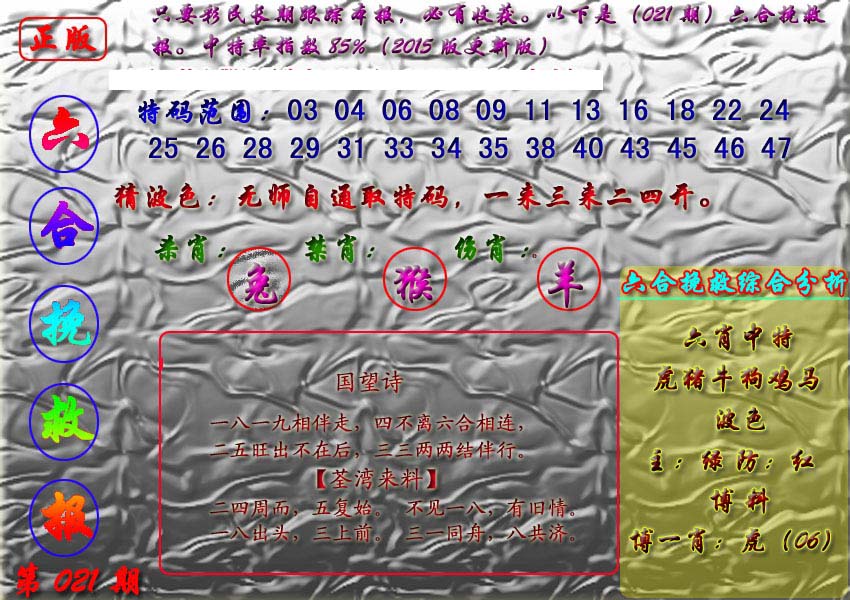 正版
只要彩民长期跟踪本报，必有收获。以下是（021期）六合挽救
报。中特率指数85%（2015版更新版）
六
合
挽
救
报
第 021 期
特码范围：03 04 06 08 09 11 13 16 18 22 24
25 26 28 29 31 33 34 35 38 40 43 45 46 47
猜波色：无师自通取特码，一来三来二四开。
杀肖：兔 禁肖：猴 伤肖：羊
国望诗
一八一九相伴走，四不离六合相连，
二五旺出不在后，三三两两结伴行。
【荃湾来料】
二四周而，五复始。 不见一八，有旧情。
一八出头，三上前。 三一同舟，八共济。
六合挽救综合分析
六肖中特
虎猪牛狗鸡马
波色
主：绿防：红
博料
博一肖：虎（06）